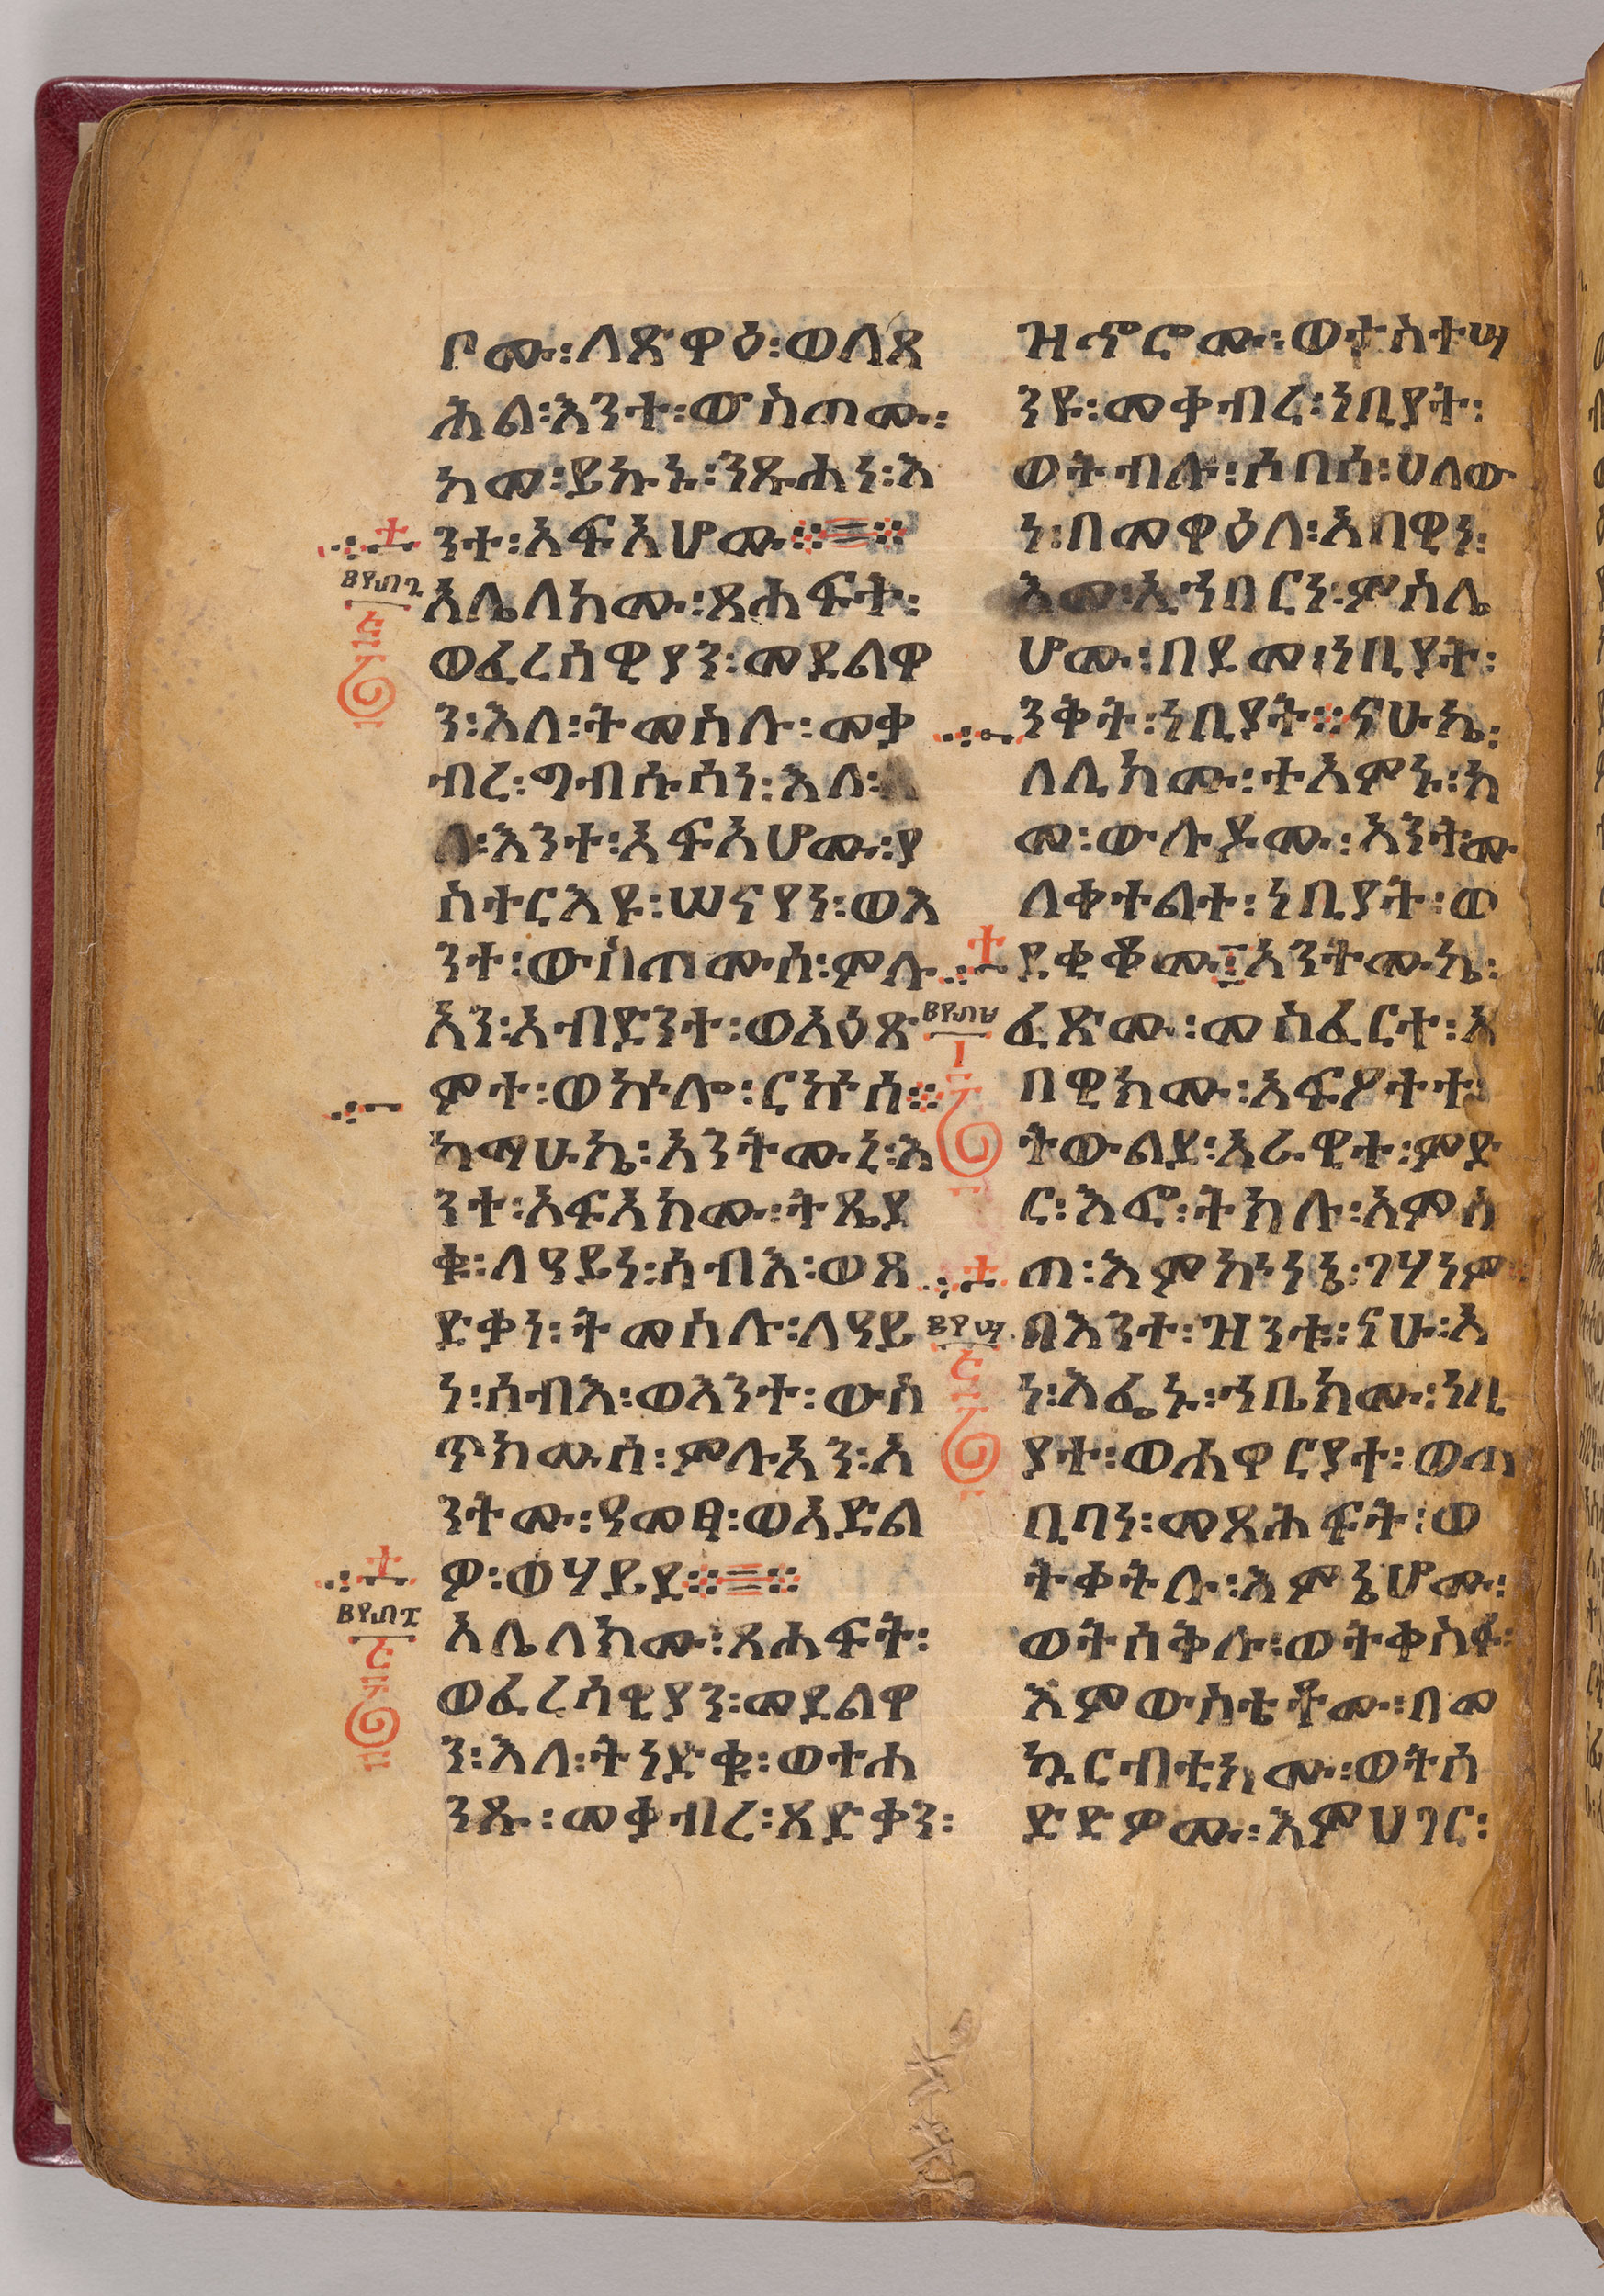 ቦሙ፡ለጽዋዕ፡ወለጻ
ሕል፡እንተ፡ውስጠሙ፡
ከመ፡ይኩኑ፡ንጹሐነ፡እ
ንተ፡አፍአሆሙ፨=፨
፪፻፴፫
አሌለክሙ፡ጸሐፍት፡
ወፈረሳዊያን፡መደልዋ
ን፡እለ፡ትመስሉ፡መቃ
ብረ፡ግብሱሳነ፡እለ፡
ለ፡እንተ፡አፍአሆሙ፡ያ
ስተርእዩ፡ሠናየነ፡ወእ
ንተ፡ውስጠሙሰ፡ምሉ
አን፡አብድንተ፡ወአዕጽ
ምተ፡ወኵሎ፡ርኵሰ፨
ከማሁኬ፡አንትሙኒ፡እ
ንተ፡አፍአክሙ፡ትጼደ
ቁ፡ለዓይነ፡ሰብእ፡ወጻ
ድቃነ፡ትመስሉ፡ለዓይ
ነ፡ሰብእ፡ወእንተ፡ውስ
ጥክሙሰ፡ምሉአን፡አ
ንትሙ፡ዓመፃ፡ወአድል
ዎ፡ወሃይደ፨=፨
አሌለክሙ፡ጸሐፍት፡
ወፈረሳዊያን፡መደልዋ
ን፡እለ፡ትነድቁ፡ወተሐ
ንጹ፡መቃብረ፡ጻድቃን፡
ዝኆሮሙ፡ወተስተሣ
ንዩ፡መቃብረ፡ነቢያት፡
ወትብሉ፡ሶበሰ፡ሀለው
ነ፡በመዋዕለ፡አበዊነ፡
እመ፡ኢኀበርነ፡ምስሌ
ሆሙ፡በደመ፡ነቢያት፡
ንቅት፡ነቢያት፨ናሁኬ፡
ለሊክሙ፡ተአምኑ፡ከ
መ፡ውሉዶሙ፡አንትሙ
ለቀተልተ፡ነቢያት፡ወ
ደቂቆሙ፡አንትሙኬ፡
ፈጽሙ፡መስፈርተ፡አ
በዊክሙ፡አፍዖትተ፡
ትውልደ፡አራዊተ፡ምድ
ር፡እፎ፡ትክሉ፡አምስ
ጠ፡እምኵነኔ፡ገሃነም
በእንተ፡ዝንቱ፡ናሁ፡አ
ነ፡እፌኑ፡ኀቤክሙ፡ነቢ
ያተ፡ወሐዋርያተ፡ወጠ
ቢባነ፡መጸሕፍት፡ወ
ትቀትሉ፡እምኔሆሙ፡
ወትሰቅሉ፡ወትቀስፉ፡
እምውስቴቶሙ፡በመ
ኳርብቲክሙ፡ወትሰ
ድድዎሙ፡እምሀገር፡